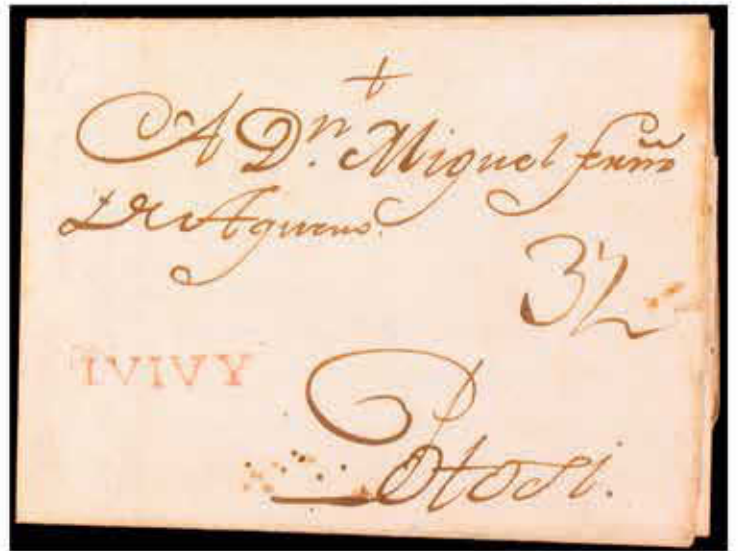 A Dn. Miguel
de Aguero.
32
IVIVY
Potosi.